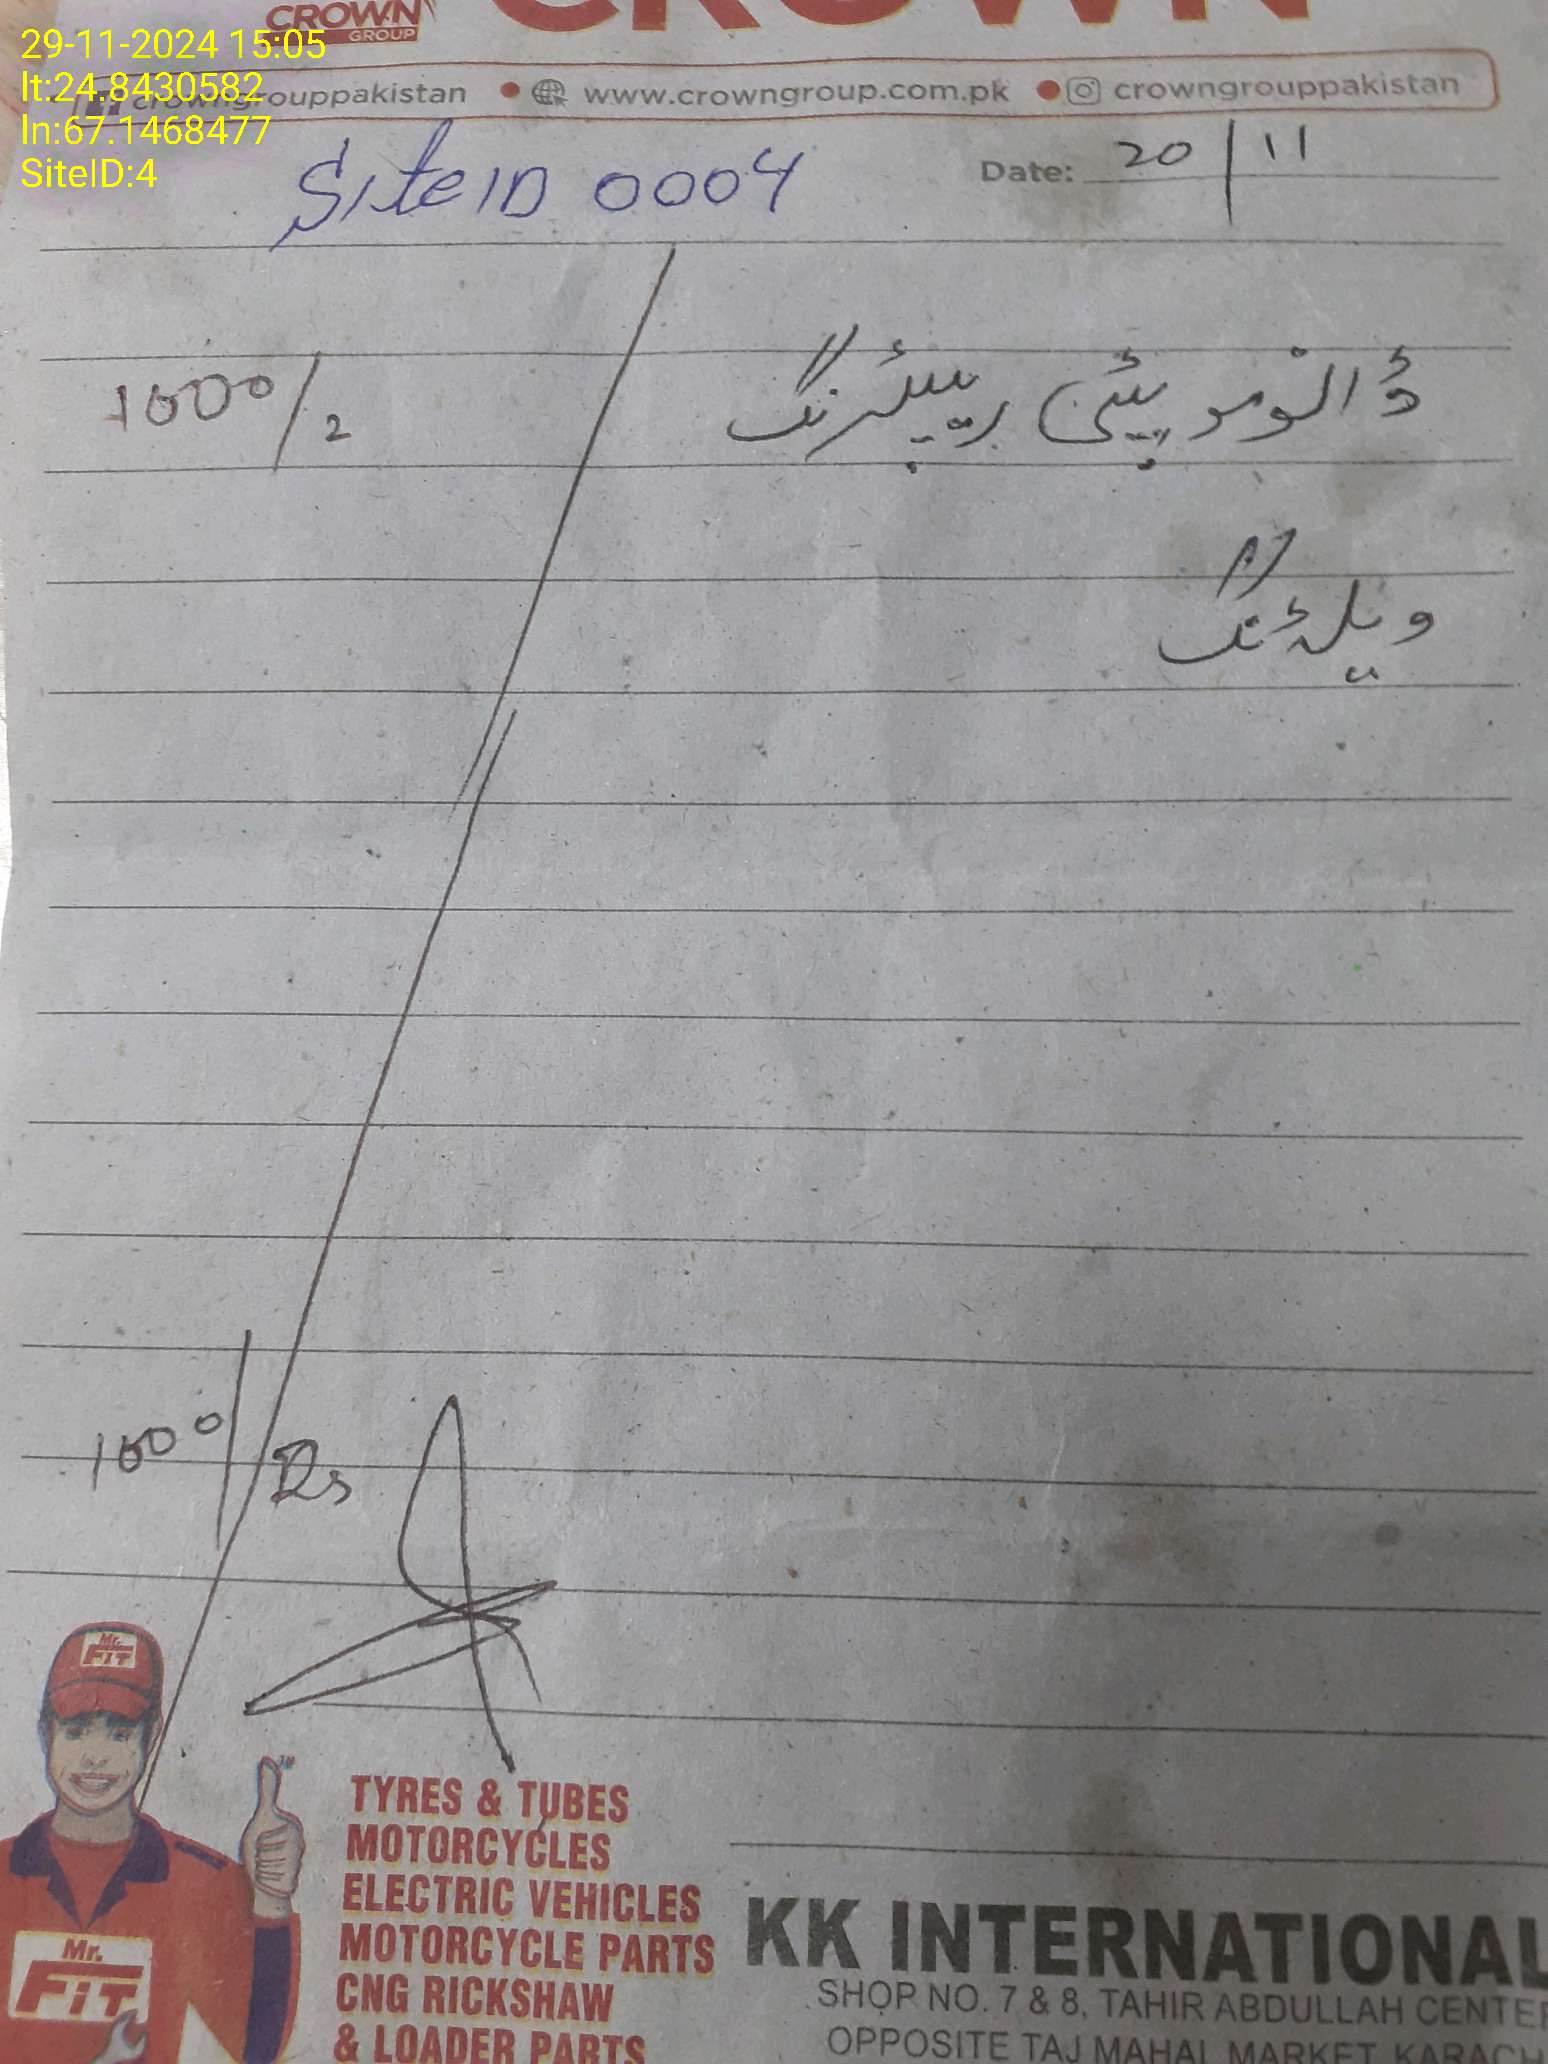 CROWN
CROWN
GROUP
29-11-2024 15:05
lt:24.8430582
ln:67.1468477
SiteID:4
crowngrouppakistan
www.crowngroup.com.pk
crowngrouppakistan
Site ID 0004
Date: 20/11
1000/
رپیئرنگ
ویلڈنگ
1000/ Rs
Mr.
FiT
TM
Mr.
FiT
TYRES & TUBES
MOTORCYCLES
ELECTRIC VEHICLES
MOTORCYCLE PARTS
CNG RICKSHAW
& LOADER PARTS
KK INTERNATIONAL
SHOP NO. 7 & 8, TAHIR ABDULLAH CENTER
OPPOSITE TAJ MAHAL MARKET, KARACH